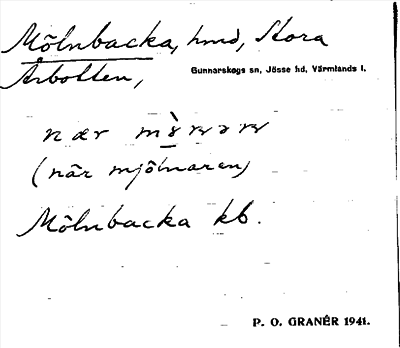 Mölnbacka, hmd, Stora
Årbotten,
Gunnarskogs sn, Jösse hd, Värmlands l.
nær
(när mjölnaren)
Mölnbacka kb.
P. O. GRANÉR 1941.